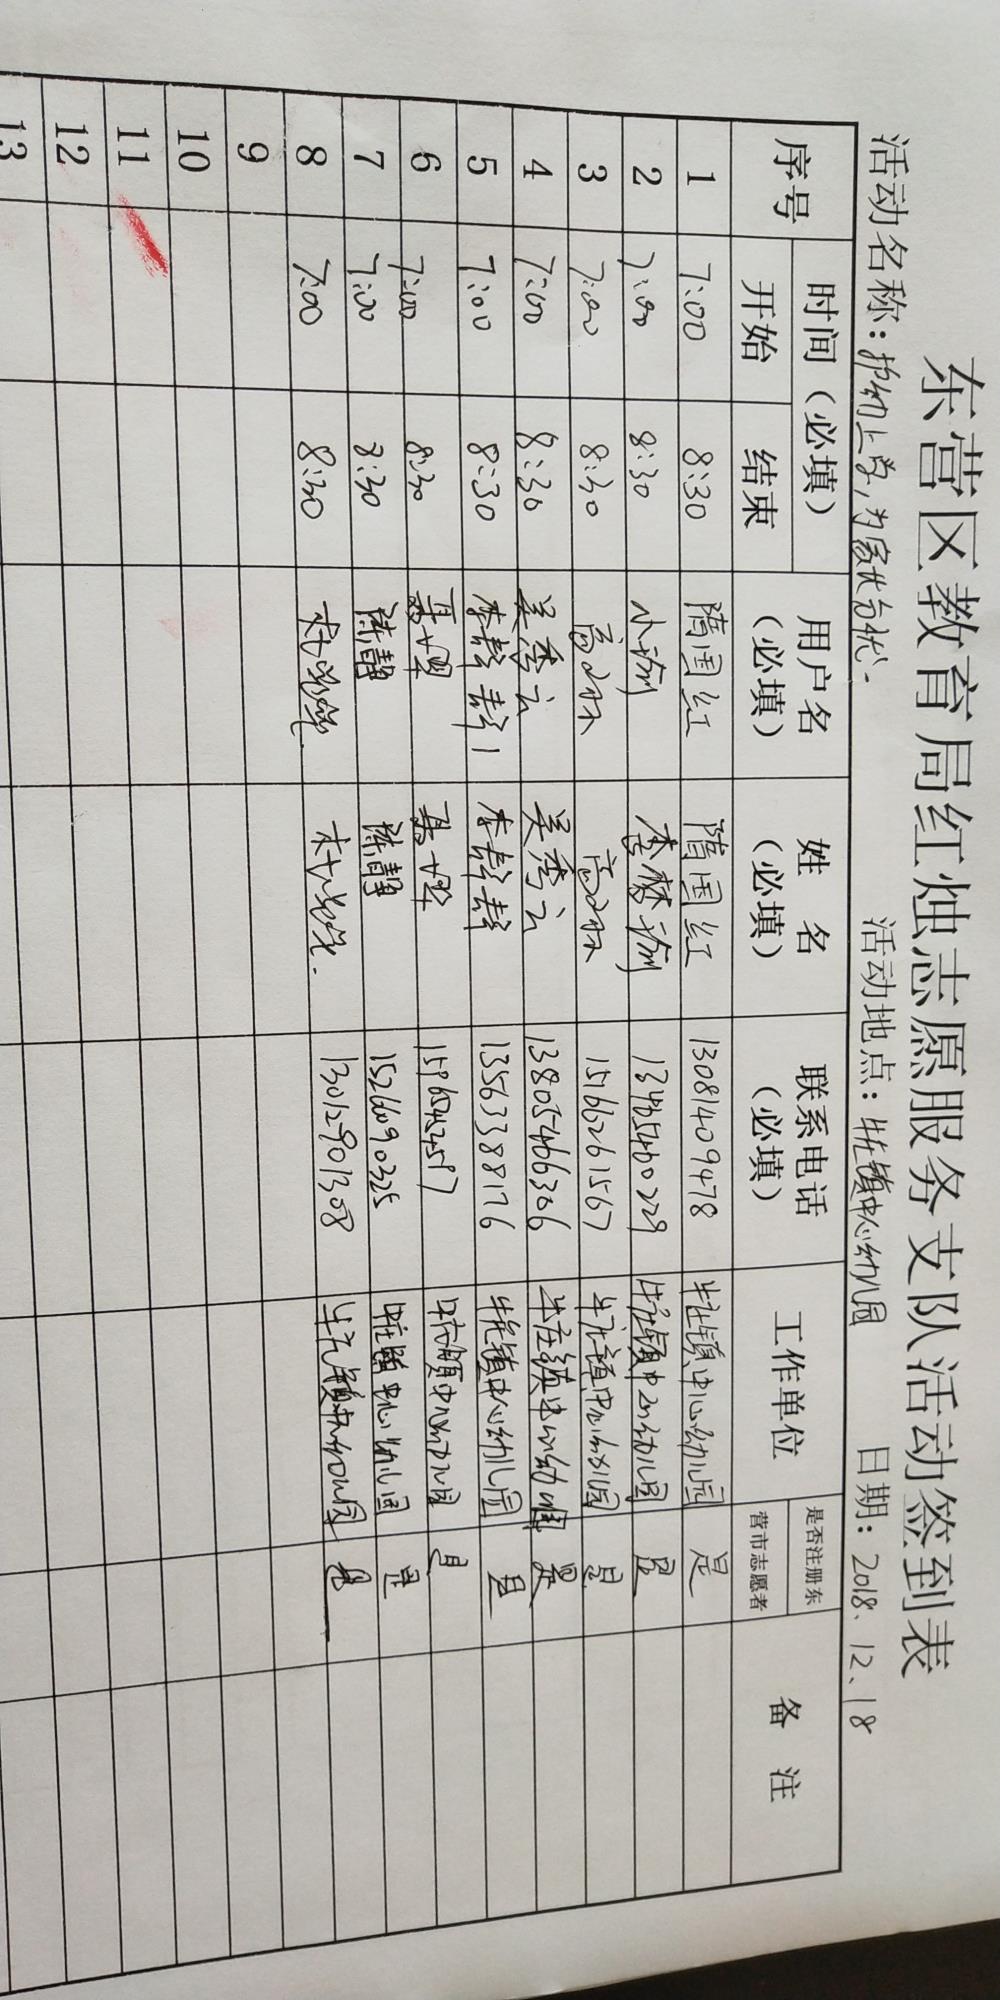 东营区教育局红烛志愿服务支队活动签到表
活动名称：护幼上学,为家长分忧. 活动地点：牛庄镇中心幼儿园 日期：2018.12.18
序号 时间（必填） 用户名（必填） 姓 名（必填） 联系电话（必填） 工作单位 是否注册东营市志愿者 备 注
开始 结束
1 7:00 8:30 隋国红 隋国红 13081409478 牛庄镇中心幼儿园 是
2 7:00 8:30 李梦 13485460229 牛庄镇中心幼儿园 是
3 7:00 8:30 15166261567 牛庄镇中心幼儿园 是
4 7:00 8:30 吴秀云 吴秀云 13805466306 牛庄镇中心幼儿园 是
5 7:00 8:30 13563388176 牛庄镇中心幼儿园 是
6 7:00 8:30 牛庄镇中心幼儿园 是
7 7:00 8:30 陈静 陈静 15266090325 牛庄镇中心幼儿园 是
8 7:00 8:30 13012901308 牛庄镇中心幼儿园 是
9
10
11
12
13